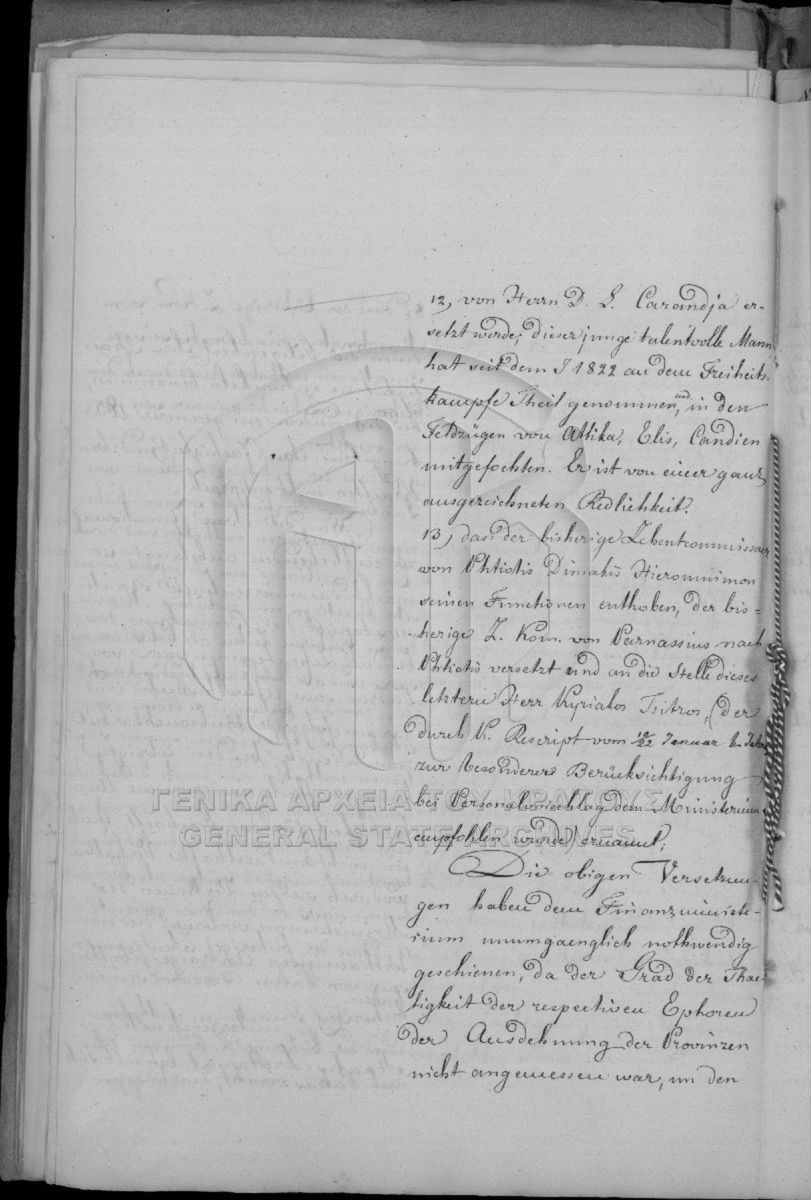 12, von Herrn D. L. Carandja er-
setzt werde; dieser junge talentvolle Mann
hat seit dem J 1822 an dem Freiheits-
kampfe Theil genommen, und in den
Feldzügen von Attika, Elis, Candien
mitgefochten. Er ist von einer ganz
ausgezeichneten Redlichkeit.
13, dass der bisherige Zehentcommissaer
von Phtiotis Dimakis Hieromnimon
seinen Functionen enthoben, der bis-
herige Z. Kom. von Parnassius nach
Phtiotis versetzt und an die Stelle dieses
letztern Herr Kyriakos Tsitros, (der
durch K. Rescript vom Januar
zur besonderen Berücksichtigung
bei Personalvorschlag dem Ministerium
empfohlen wurde) ernannt;
Die obigen Versetzun-
gen haben dem Finanzministe-
rium unumgaenglich nothwendig
geschienen, da der Grad der Thae-
tigkeit der respectiven Ephoren
der Ausdehnung der Provinzen
nicht angemessen war, um den
ΓΕΝΙΚΑ ΑΡΧΕΙΑ ΤΟΥ ΚΡΑΤΟΥΣ
GENERAL STATE ARCHIVES